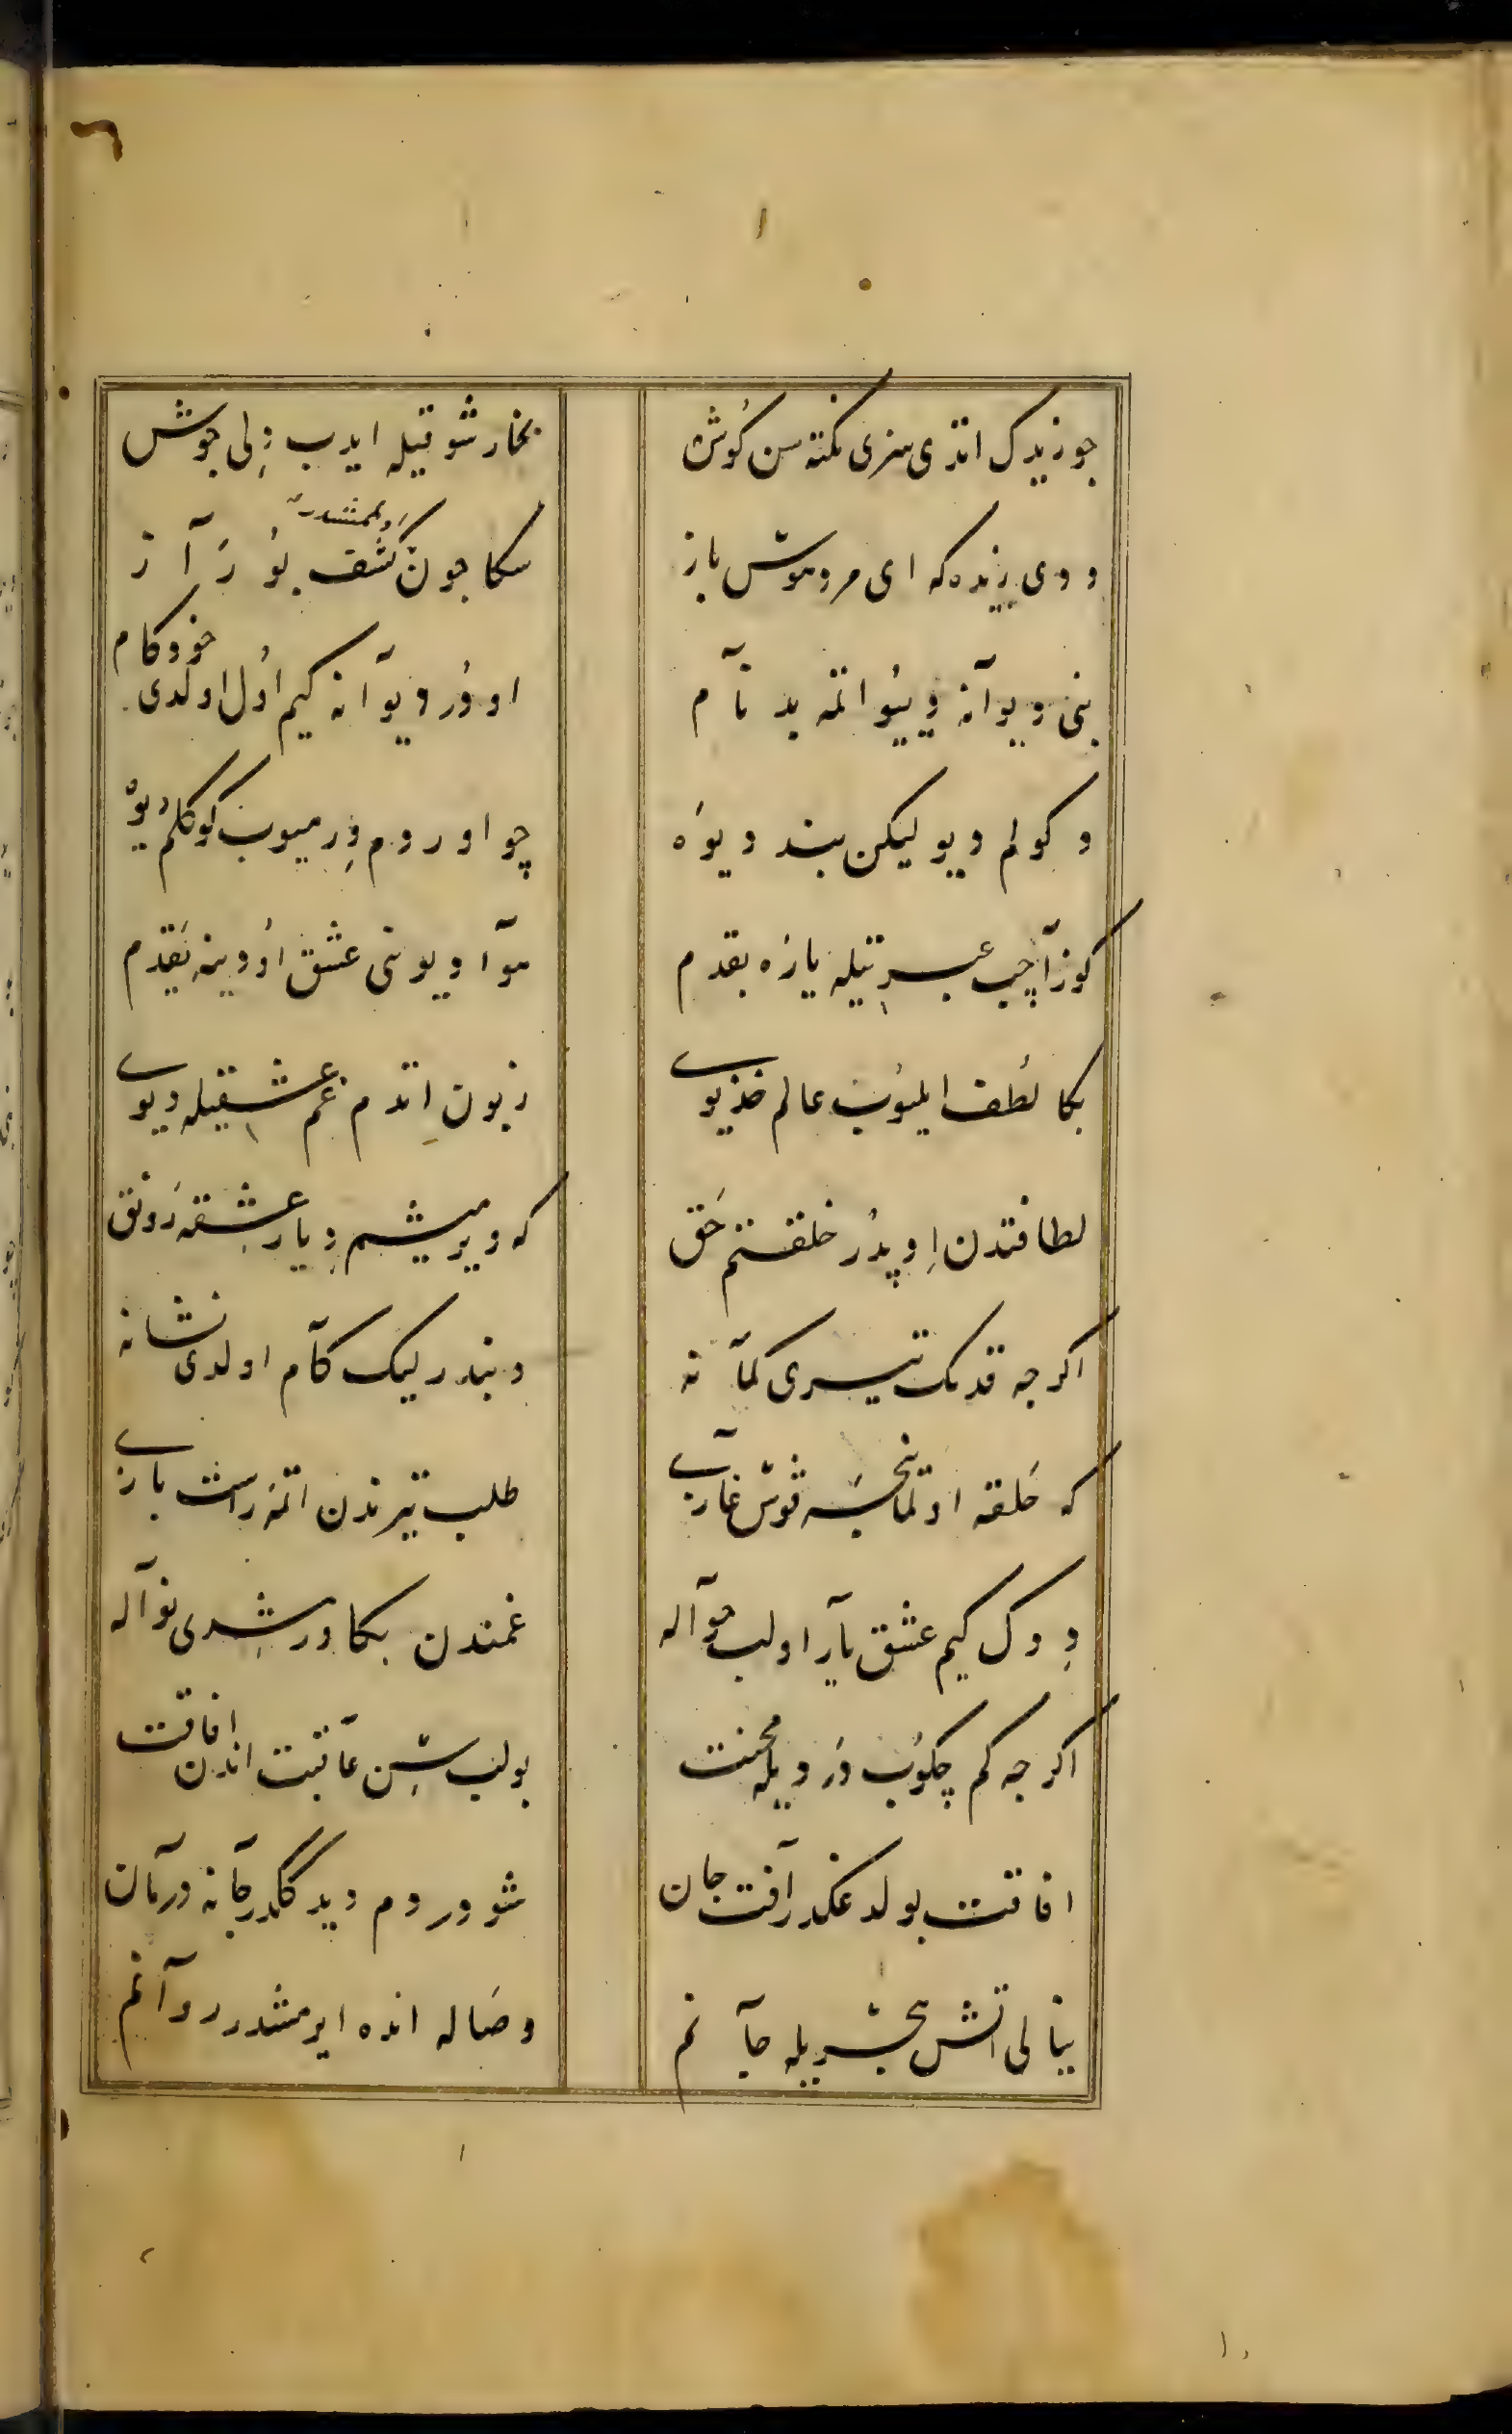 ٦
چو زیدک اتدی سزی نکته سن گوش
بخار شوقیله ایدب دلی جوش
ددی زنده که ای مرد هوش باز
سکا چون کشف اولمشدر بو راز
بنی دیوانه دیو اتمه بدنام
اودر دیوانه کیم اول اولدی خودکام
دکولم دیو لیکن بند دیوه
چو اوردم ویرمیوب کوکلم دیوه
کوز آچب عبرتیله یاره بقدم
هوا دیونی عشق اودینه یقدم
بکا لطف ایلیوب عالم خدیوی
زبون اتدم غم عشقیله دیوی
لطافتدن ایدپدر خلقتم حق
که ویرمیشم دیار عشقه رونق
اکرچه قدمک تیری کمانه
دنبدر لیک کام اولدی نشانه
که حلقه اولماینجه قوش غرابی
طلب تیرندن اتمه راست یابی
دکل کیم عشق یار اولب حواله
غمندن بکا ورشدی نواله
اکرچه کم چکوب درد یله محنت
بولبشن عاقبت اندن افاقت
افاقت بولدغکدر آفت جان
شو دردم دیر کلدر جانه درمان
ینالی اتش هجریله جانم
وصاله انده ایرمشدر روانم